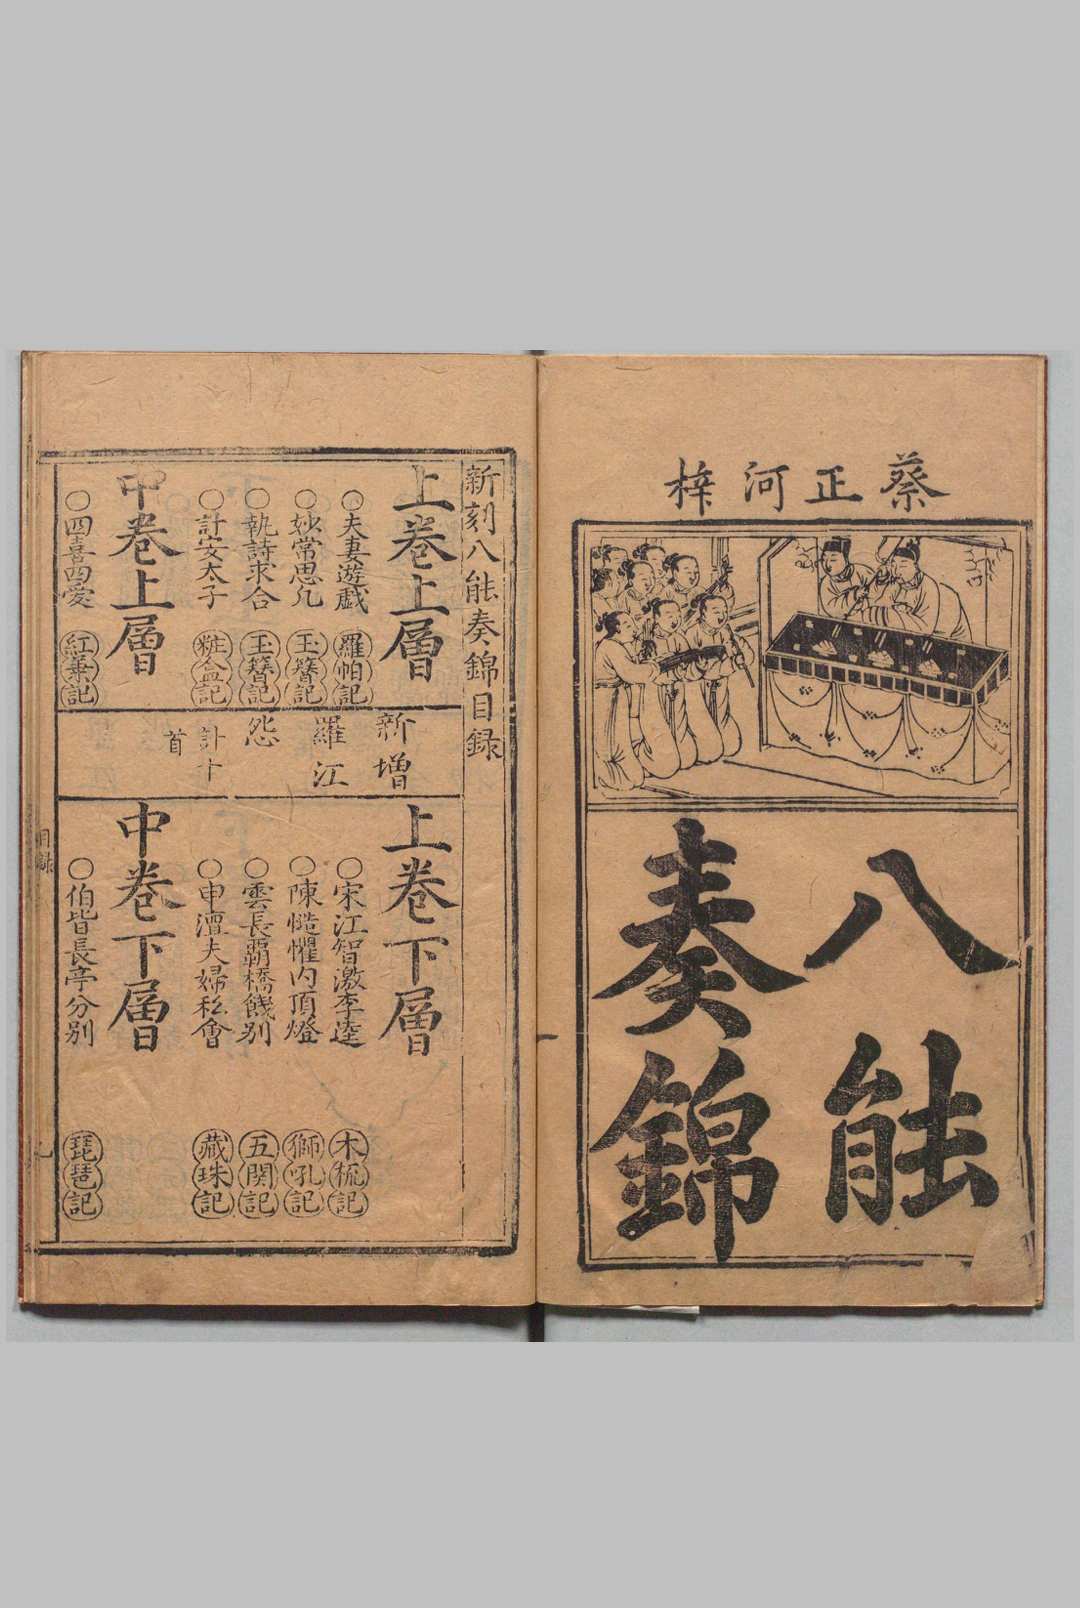 蔡正河梓
八能
奏錦
新刻八能奏錦目錄
上卷上層
○夫妻遊戲 羅帕記
○妙常思凡 玉簪記
○執詩求合 玉簪記
○計安太子 粧盒記
中卷上層
○四喜四愛 紅葉記
新增
羅江
怨
計十
首
上卷下層
○宋江智激李逵 木梳記
○陳慥懼内頂燈 獅吼記
○雲長覇橋餞别 五関記
○申澶夫婦私會 藏珠記
中卷下層
○伯皆長亭分别 琵琶記
目録